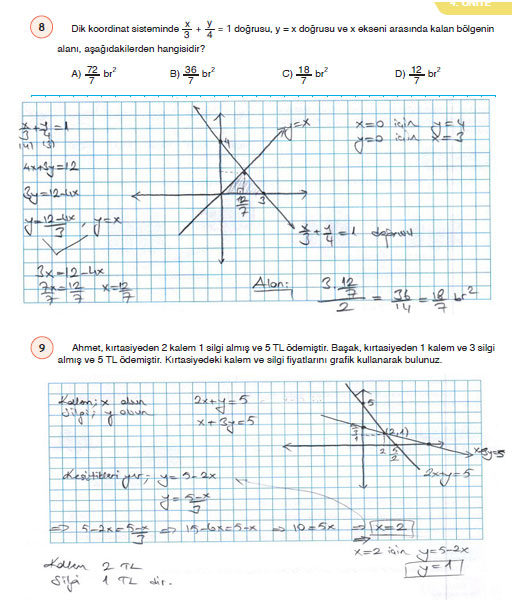 4. ÜNİTE
8 Dik koordinat sisteminde x/3 + y/4 = 1 doğrusu, y = x doğrusu ve x ekseni arasında kalan bölgenin
alanı, aşağıdakilerden hangisidir?
A) 72/7 br² B) 36/7 br² C) 18/7 br² D) 12/7 br²
x/3 + y/4 = 1
(4) (3)
4x+3y=12
3y=12-4x
y=12-4x/3, y=x
3x=12-4x
7x/7=12/7 x=12/7
4
y=x
12/7 3
x/3 + y/4 = 1 doğrusu
x=0 için y=4
y=0 için x=3
Alan: 3.12/7 / 2 = 36/14 = 18/7 br²
9 Ahmet, kırtasiyeden 2 kalem 1 silgi almış ve 5 TL ödemiştir. Başak, kırtasiyeden 1 kalem ve 3 silgi
almış ve 5 TL ödemiştir. Kırtasiyedeki kalem ve silgi fiyatlarını grafik kullanarak bulunuz.
Kalem; x olsun 2x+y=5
Silgi; y olsun x+3y=5
5
5/3
(2,1)
2 5/2
x+3y=5
2x+y=5
Kesiştikleri yer; y=5-2x
y=5-x/3
⇒ 5-2x=5-x/3 ⇒ 15-6x=5-x ⇒ 10=5x ⇒ x=2
x=2 için y=5-2x
y=1
Kalem 2 TL
Silgi 1 TL dir.